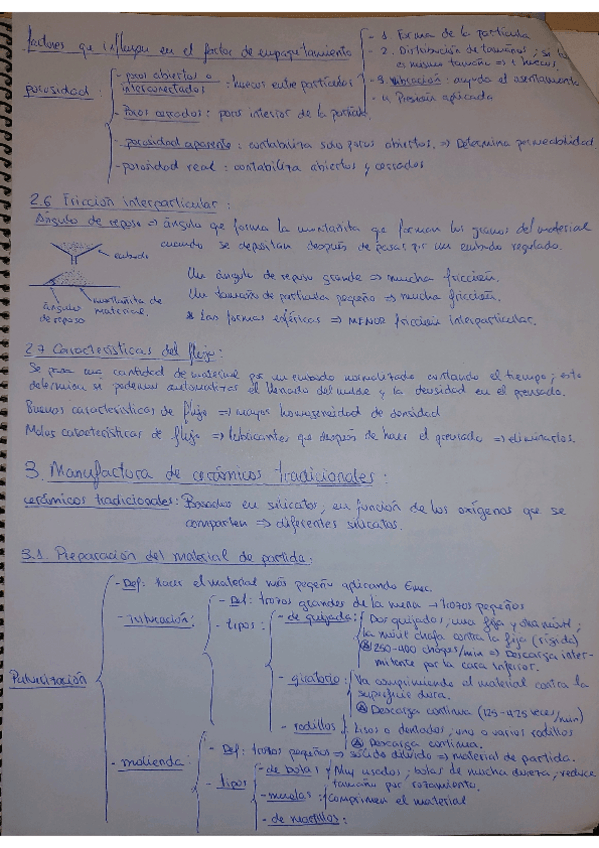 Factores que influyen en el factor de empaquetamiento
- 1. Forma de la partícula
- 2. Distribución de tamaños; si
el mismo tamaño ⇒ ↑ huecos.
- 3. vibración: ayuda al asentamiento
- 4. Presión aplicada
porosidad:
- poros abiertos o
interconectados : huecos entre partículas
- Poros cerrados: poros interior de la partícula.
- porosidad aparente: contabiliza solo poros abiertos. ⇒ Determina permeabilidad
- porosidad real: contabiliza abiertos y cerrados
2.6 Fricción interparticular:
Ángulo de reposo ⇒ ángulo que forma la montañita que forman los granos del material
cuando se depositan después de pasar por un embudo regulado.
embudo
montañita de
material.
ángulo
de reposo
Un ángulo de reposo grande ⇒ mucha fricción.
Un tamaño de partícula pequeño ⇒ mucha fricción.
* Las formas esféricas ⇒ MENOR fricción interparticular.
2.7 Características del flujo:
Se pasa una cantidad de material por un embudo normalizado contando el tiempo; esto
determina si podemos automatizar el llenado del molde y la densidad en el prensado.
Buenas características de flujo ⇒ mayor homogeneidad de densidad
Malas características de flujo ⇒ lubricantes, que después de hacer el prensado ⇒ eliminarlos.
3. Manufactura de cerámicos tradicionales:
cerámicos tradicionales: Basados en silicatos, en función de los oxígenos que se
comparten ⇒ diferentes silicatos.
3.1. Preparación del material de partida:
Pulverización
- Def: hacer el material más pequeño aplicando Emec.
- trituración:
- Def: trozos grandes de la mena → trozos pequeños
- tipos:
- de quijada: Dos quijadas, una fija y otra móvil;
la móvil chafa contra la fija (rígida)
250-400 choques/min ⇒ Descarga inter-
mitente por la cara inferior.
- giratoria: Va comprimiendo el material contra la
superficie dura.
Descarga continua (125-425 veces/min)
- rodillos: Lisos o dentados; uno o varios rodillos
Descarga continua.
- molienda:
- Def: trozos pequeños ⇒ sólido dividido ⇒ material de partida.
- tipos
- de bolas: Muy usados; bolas de mucha dureza; reduce
tamaño por rozamiento.
- muelas: comprimen el material
- de martillos: